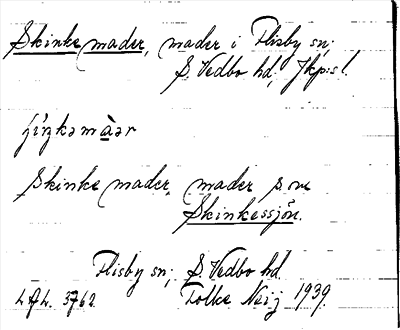 Skinke mader, mader i Flisby sn;
S. Vedbo hd, Jkp:s l.
Skinke mader, mader som
Skinkessjön.
Flisby sn; S. Vedbo hd.
Folke Neij 1939.